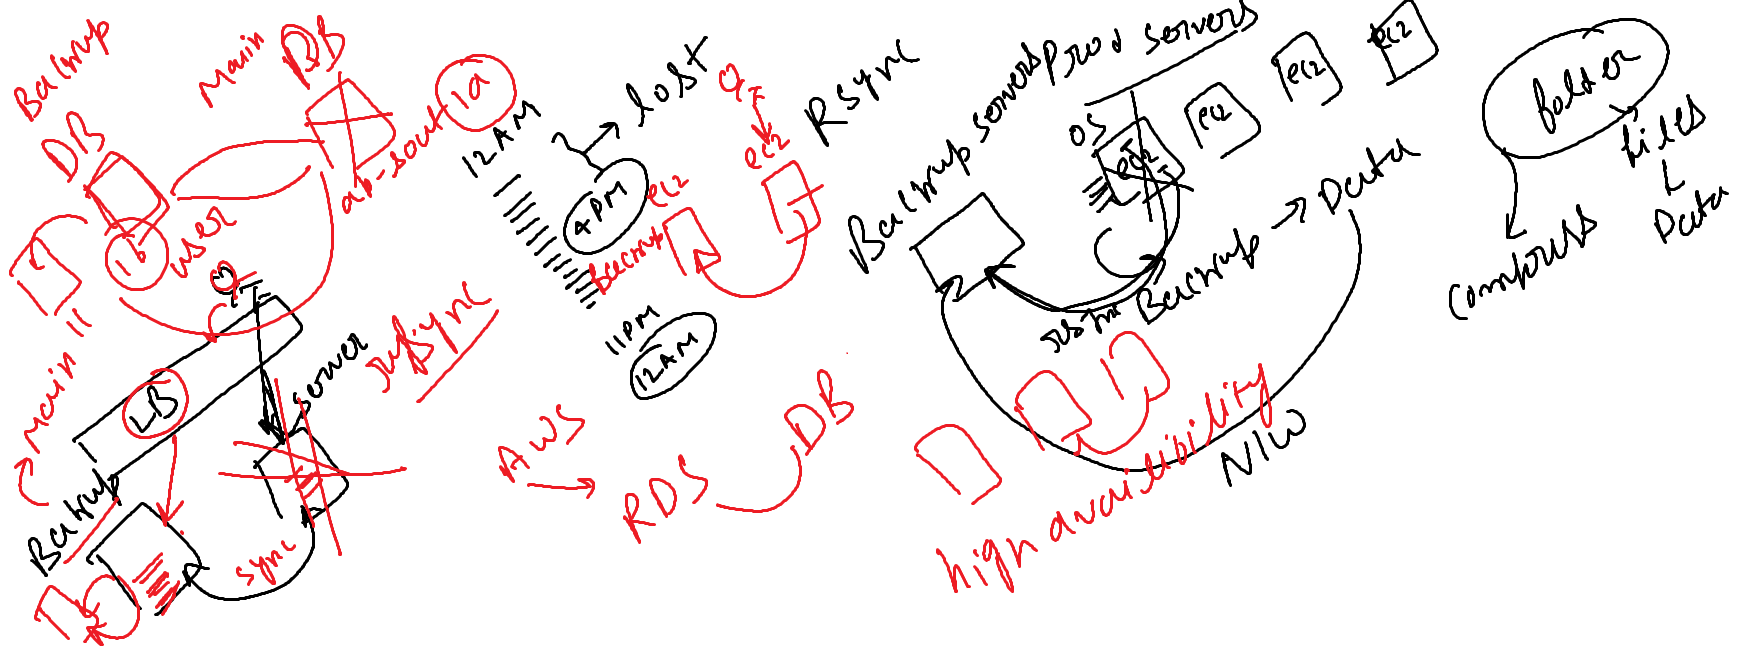 Backup
DB
1b
Main
DB
ap-south
1a
user
Main
LB
Server
Backup
sync
rsync
12AM
lost
4PM
11PM
12AM
ec2
Backup
ec2
Rsync
AWS
RDS
DB
Backup servers
Prod servers
OS
ec2
ec2
ec2
ec2
Backup
Data
high availibility
N/W
folder
files
Data
compress